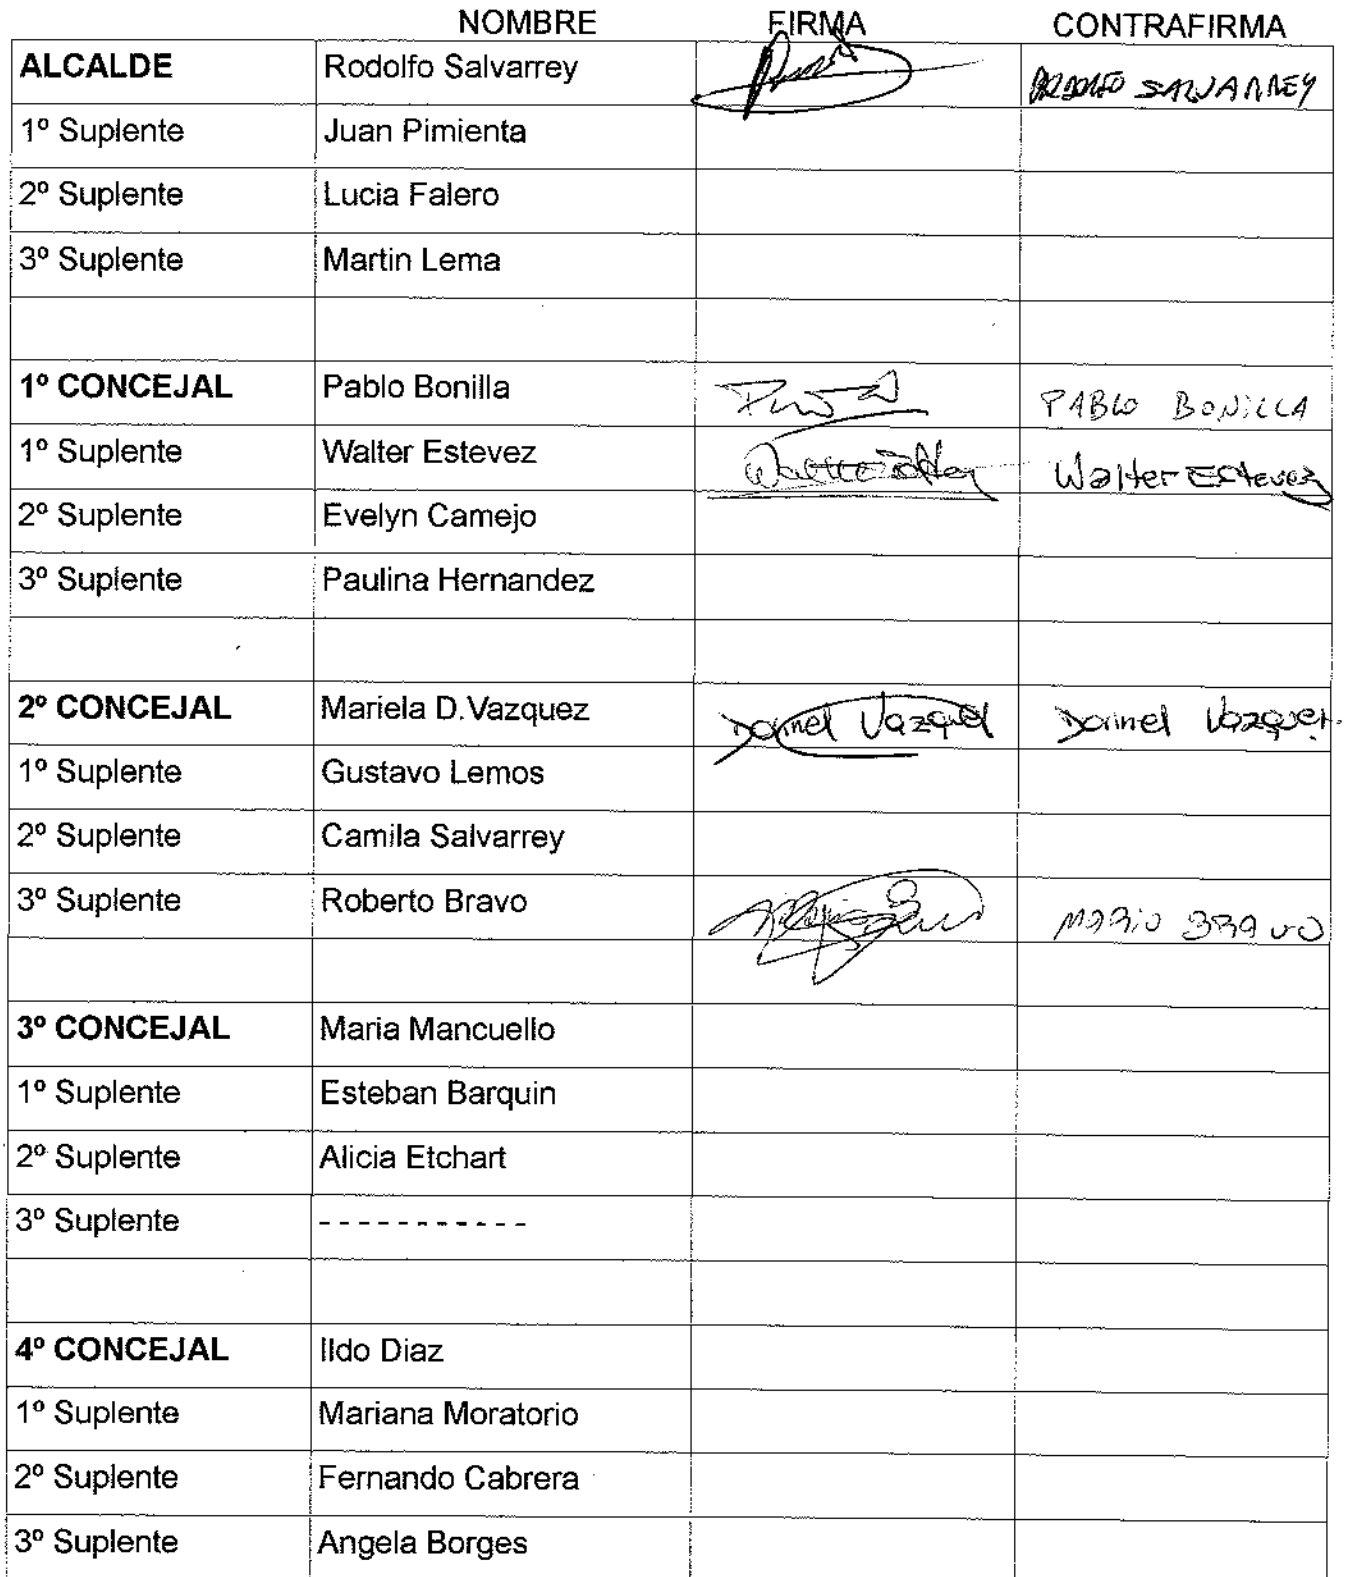 NOMBRE FIRMA CONTRAFIRMA
ALCALDE Rodolfo Salvarrey SALVARREY
1º Suplente Juan Pimienta
2º Suplente Lucia Falero
3º Suplente Martin Lema
1º CONCEJAL Pablo Bonilla PABLO BONILLA
1º Suplente Walter Estevez Walter Estevez
2º Suplente Evelyn Camejo
3º Suplente Paulina Hernandez
2º CONCEJAL Mariela D.Vazquez Dorinel Vazquez Dorinel Vazquez.
1º Suplente Gustavo Lemos
2º Suplente Camila Salvarrey
3º Suplente Roberto Bravo MARIO BRAVO
3º CONCEJAL Maria Mancuello
1º Suplente Esteban Barquin
2º Suplente Alicia Etchart
3º Suplente - - - - - - - - - - -
4º CONCEJAL Ildo Diaz
1º Suplente Mariana Moratorio
2º Suplente Fernando Cabrera
3º Suplente Angela Borges